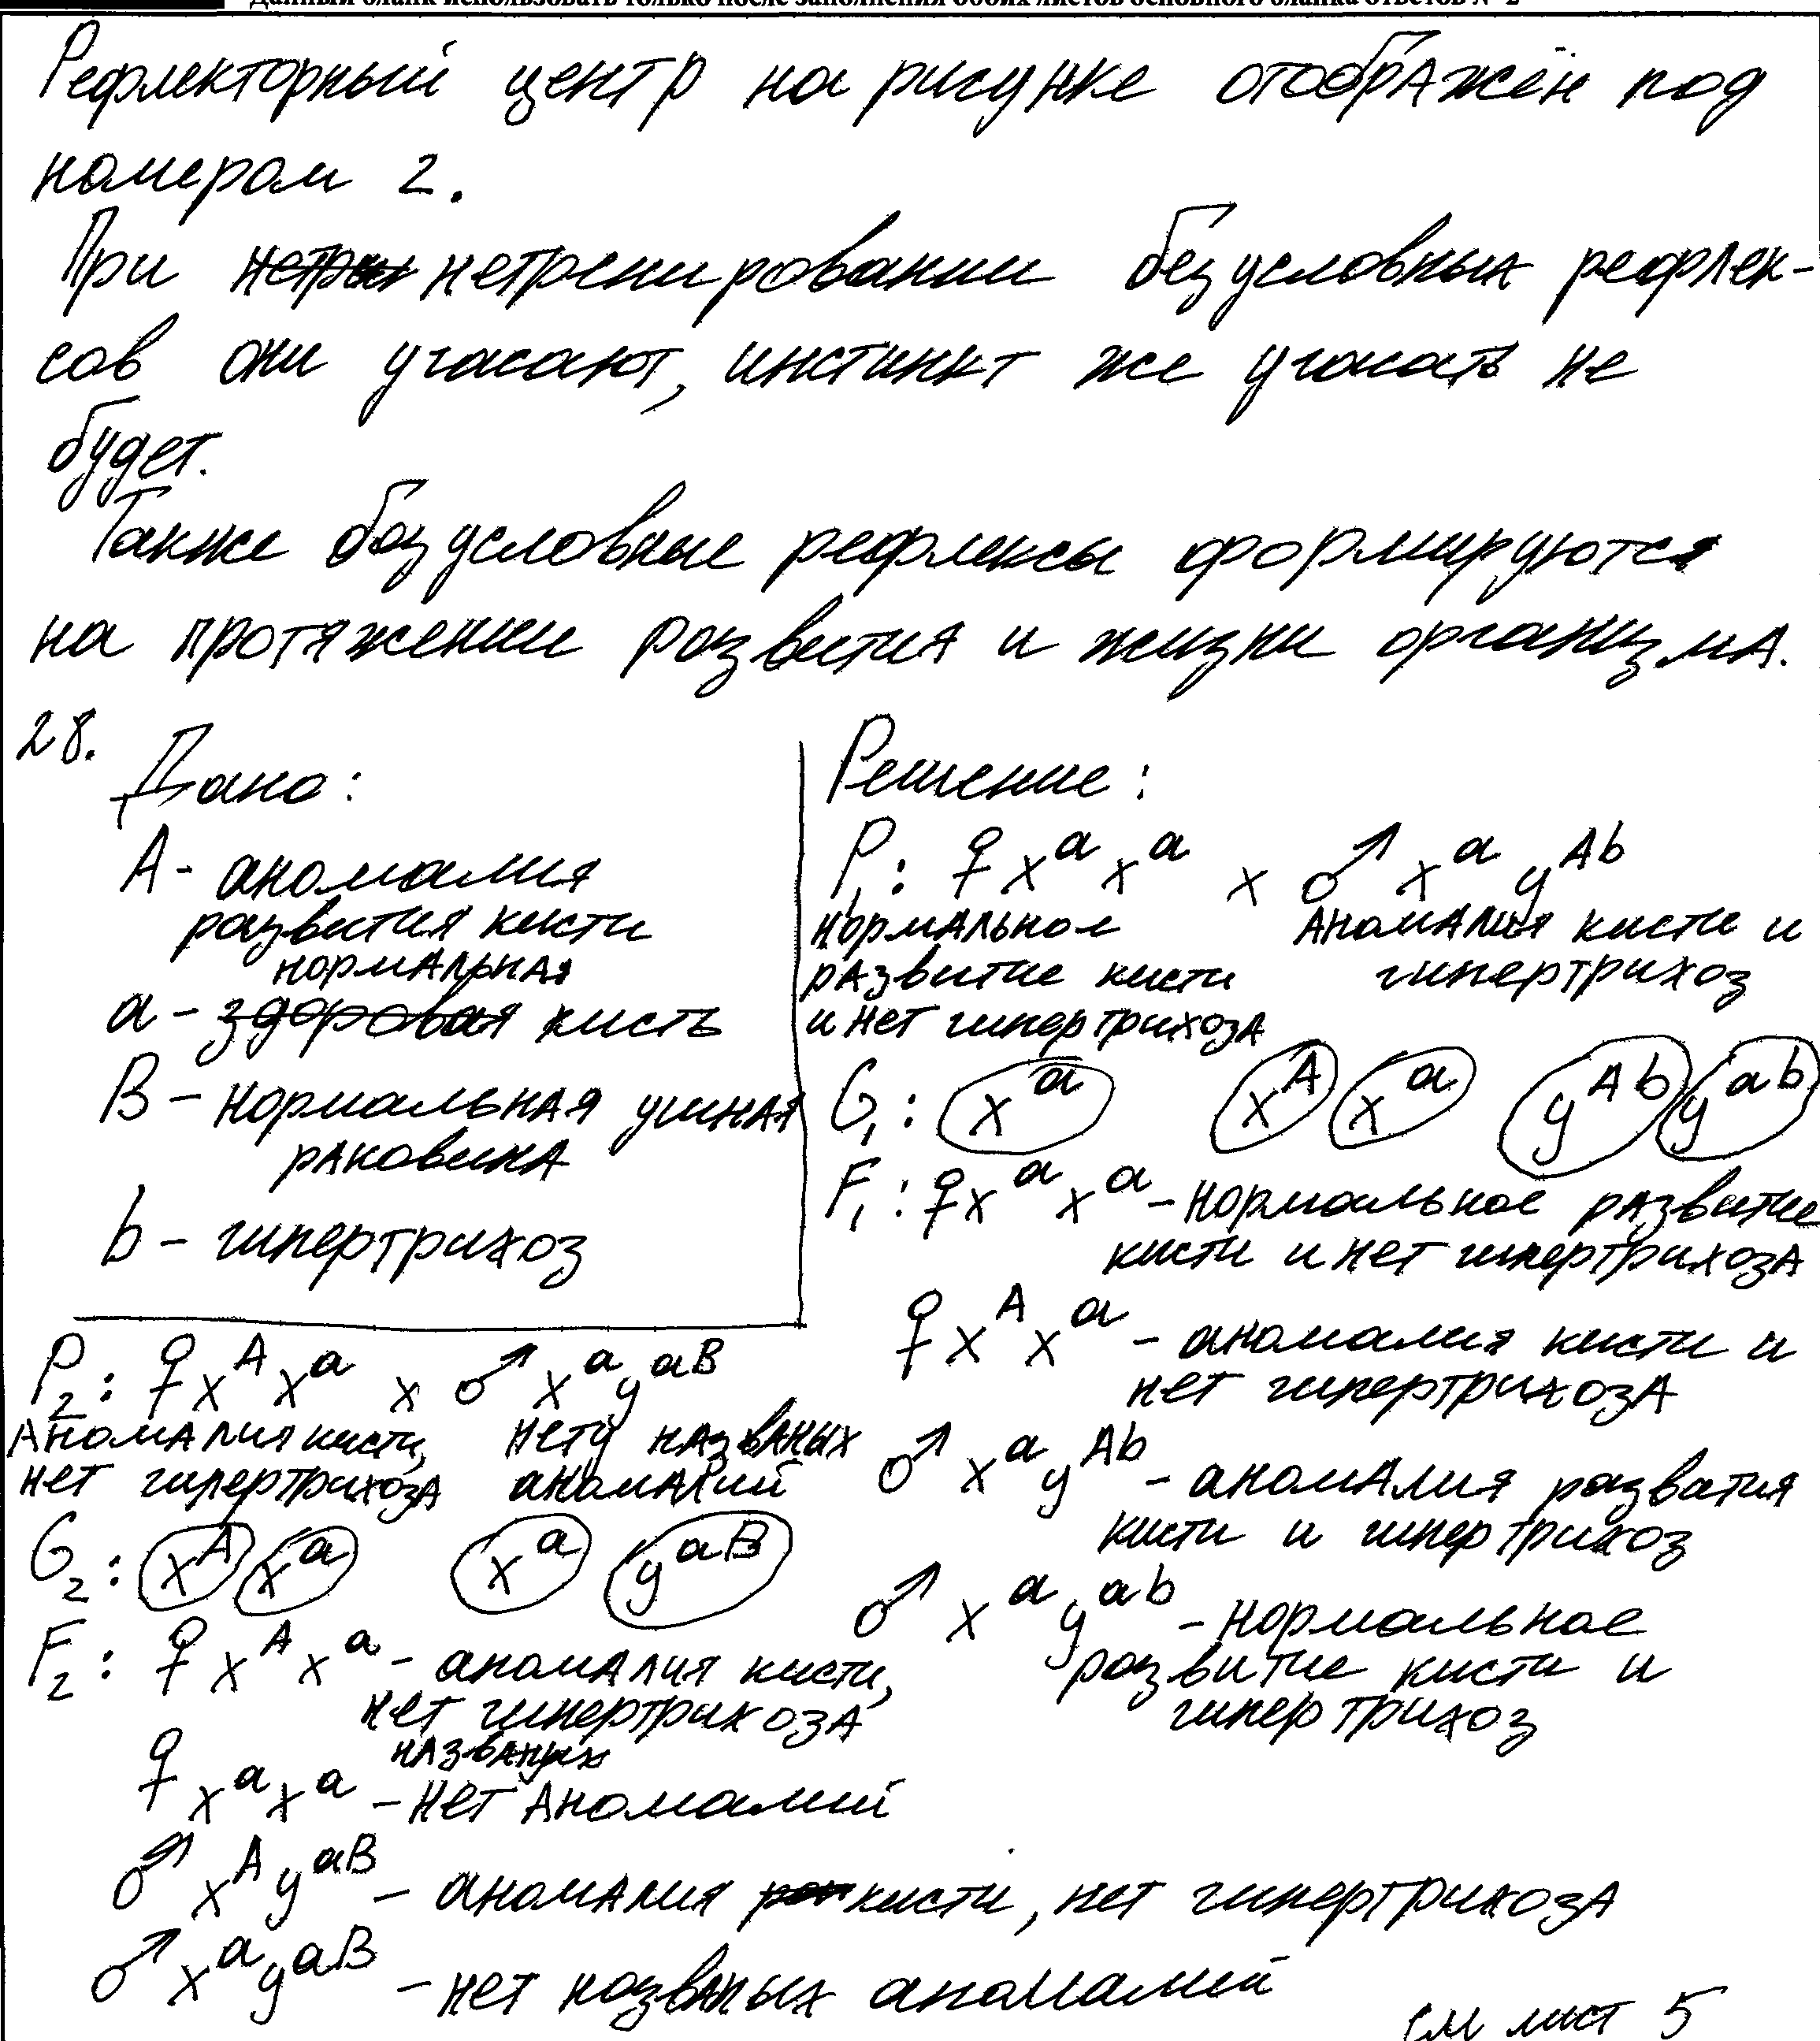 Данный бланк использовать только после заполнения обоих листов основного бланка ответов № 2
Рефлекторный центр на рисунке отображён под
номером 2.
При нетрен нетренировании безусловных рефлек-
сов они угасают, инстинкт же угасать не
будет.
Также безусловные рефлексы формируются
на протяжении развития и жизни организма.
28.
Дано:
А - аномалия
развития кисти
нормальная
а - здоровая кисть
B - нормальная ушная
раковина
b - гипертрихоз
Решение:
P₁: ♀ xᵃ xᵃ x ♂ xᵃ yᴬb
нормальное Аномалия кисти и
развитие кисти гипертрихоз
и нет гипертрихоза
G₁: xᵃ xᴬ xᵃ yᴬb yᵃb
F₁: ♀ xᵃ xᵃ - нормальное развитие
кисти и нет гипертрихоза
♀ xᴬ xᵃ - аномалия кисти и
нет гипертрихоза
♂ xᵃ yᴬb - аномалия разватия
кисти и гипертрихоз
♂ xᵃ yᵃb - нормальное
развитие кисти и
гипертрихоз
P₂: ♀ xᴬ xᵃ x ♂ xᵃ yᵃB
Аномалия кисти, нету названых
нет гипертрихоза аномалий
G₂: xᴬ xᵃ xᵃ yᵃB
F₂: ♀ xᴬ xᵃ - аномалия кисти,
нет гипертрихоза
названых
♀ xᵃ xᵃ - нет Аномалий
♂ xᴬ yᵃB - аномалия кисти, нет гипертрихоза
♂ xᵃ yᵃB - нет названых аномалий
см лист 5